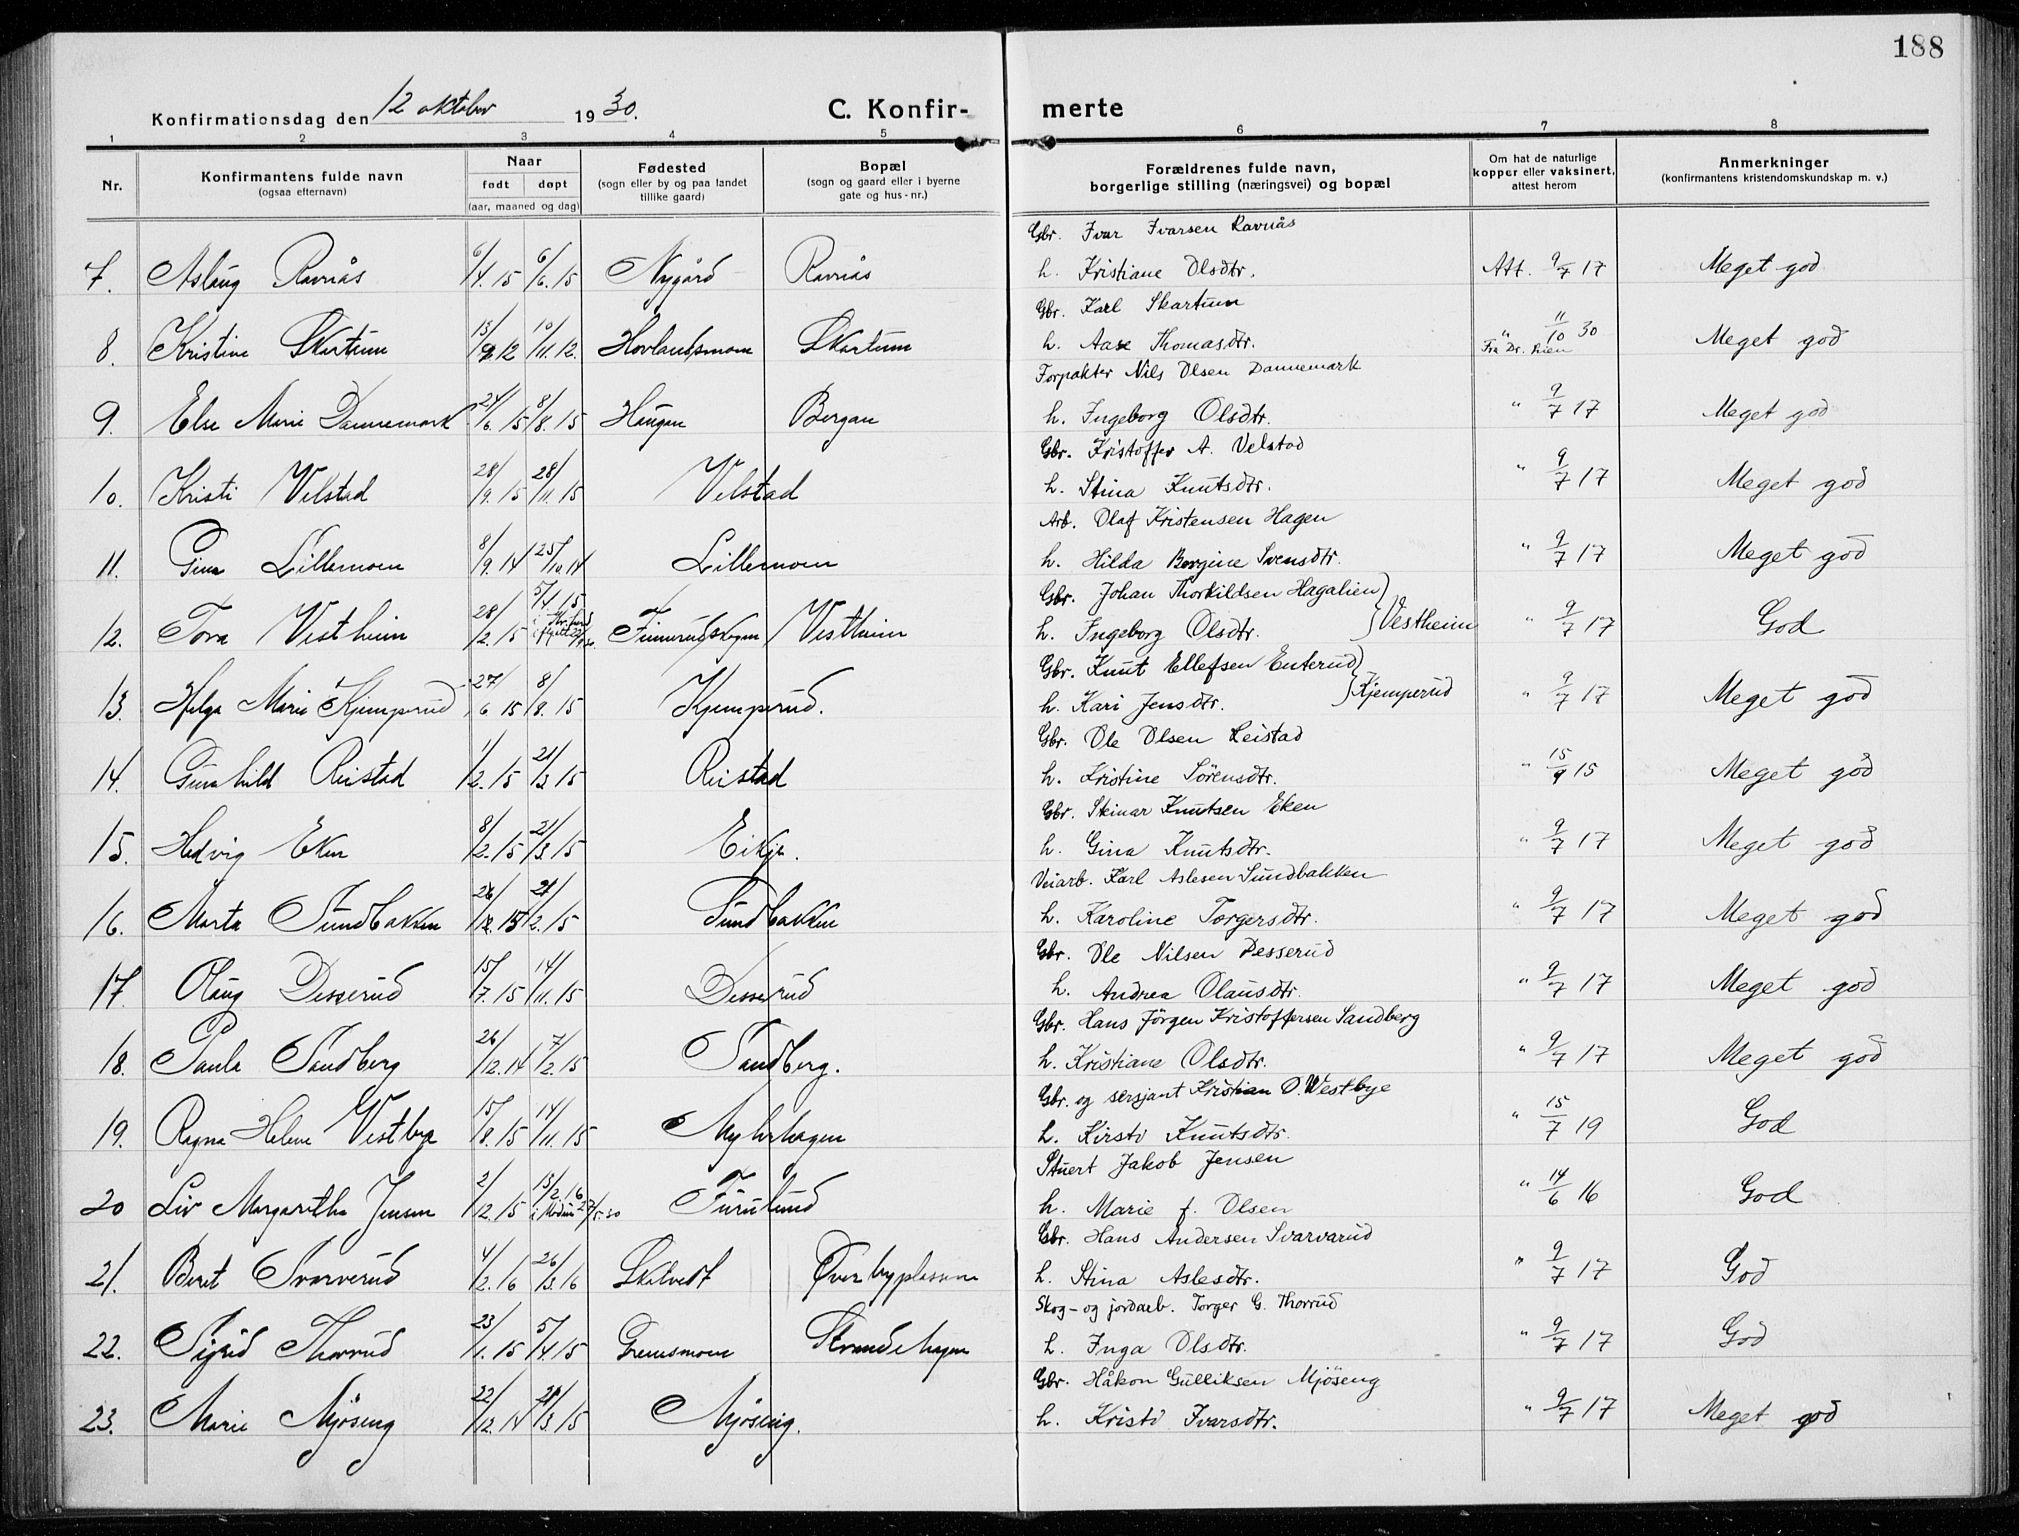 188
Konfirmationsdag den 12 oktober 1930.
C. Konfir- merte
1 2 3 4 5 6 7 8
Nr.
Konfirmantens fulde navn
(ogsaa efternavn)
Naar
født døpt
(aar, maaned og dag)
Fødested
(sogn eller by og paa landet
tillike gaard)
Bopæl
(sogn og gaard eller i byerne
gate og hus-nr.)
Forældrenes fulde navn,
borgerlige stilling (næringsvei) og bopæl
Om hat de naturlige
kopper eller vaksinert,
attest herom
Anmerkninger
(konfirmantens kristendomskundskap m. v.)
Gbr. Ivar Ivarsen Ravnås
7. Aslaug Ravnås 6/4.15 6/6.15 Nygård Ravnås h. Kristiane Olsdtr. Att. 9/7 17 Meget god
Gbr. Karl Skartum
8. Kristine Skartum 13/9 12 10/11.12. Hovlandsmoen Skartum h. Aase Thomasdtr. " 11/10 30 Meget god
Fra Dr.
Forpakter Nils Olsen Dannemark
9. Else Marie Dannemark 24/6.15 8/8.15 Haugen Bergan h. Ingeborg Olsdtr. " 9/7 17 Meget god
Gbr. Kristoffer A. Velstad
10. Kristi Velstad 28/9.15 28/11.15 Velstad h. Stina Knutsdtr. " 9/7 17 Meget god
Arb. Olaf Kristensen Hagen
11. Gina Lillemoen 8/9.14 25/10 14 Lillemoen h. Hilda Borgine Svensdtr. " 9/7 17 Meget god
Gbr. Johan Thorkildsen Hagalien
12. Tora Vestheim 28/2.15 5/4.15 Finnerudskogen Vestheim h. Ingeborg Olsdtr. } Vestheim " 9/7 17 God
Gbr. Knut Ellefsen Enterud
13. Helga Marie Kjemperud 27/6 15 8/8.15 Kjemperud. h. Kari Jensdtr. } Kjemperud " 9/7 17 Meget god
Gbr. Ole Olsen Reistad
14. Gunhild Reistad 1/2.15 21/3 15 Reistad h. Kristine Sørensdtr. " 15/9 15 Meget god
Gbr. Steinar Knutsen Eken
15. Hedvig Eken 8/2.15 21/3.15 Eikje. h. Gina Knutsdtr. " 9/7 17 Meget god
Veiarb. Karl Aslesen Sundbakken
16. Marta Sundbakken 26/12. 21/2.15 Sundbakken h. Karoline Torgersdtr. " 9/7 17 Meget god
Gbr. Ole Nilsen Desserud
17. Olaug Desserud 15/7.15 14/11.15 Desserud h. Andrea Olausdtr. " 9/7 17 Meget god
Gbr. Hans Jörgen Kristoffersen Sandberg
18. Paula Sandberg 26/12.14 7/2.15 Sandberg. h. Kristiane Olsdtr. " 9/7 17 Meget god
Gbr. og sersjant Kristian O. Westbye
19. Ragna Helene Vestbye 15/8.15 14/11.15 Myhrhagen h. Kirsti Knutsdtr. " 15/7 19 God
Stuert Jakob Jensen
20 Liv Margaretha Jensen 2/12.15 13/2.16 i Modum 27/5.30 Furulund h. Marie f. Olsen " 14/6 16 God
Gbr. Hans Andersen Svarvarud
21. Beret Svarverud 4/2.16 26/3.16 Skalvedt Overbyplassen h. Stina Aslesdtr. " 9/7 17 God
Skog- og jordarb. Torger G. Thorrud
22. Sigrid Thorrud 23/1.15 5/4.15 Grensmoen Strandehagen h. Inga Olsdtr. " 9/7 17 God
Gbr. Håkon Gulliksen Mjöseng
23. Marie Mjöseng 22/12.14 21/3.15 Mjöseng. h. Kristi Ivarsdtr. " 9/7 17 Meget god